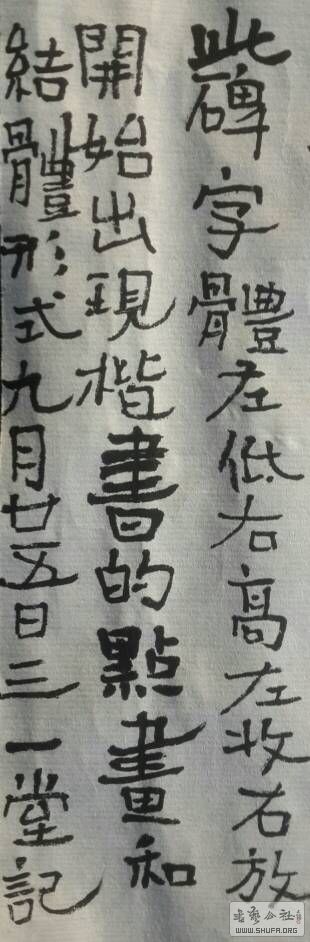 此碑字體左低右高左收右放
開始出現楷書的點畫和
結體形式九月廿五日三一堂記
書藝公社
WWW.SHUFA.ORG